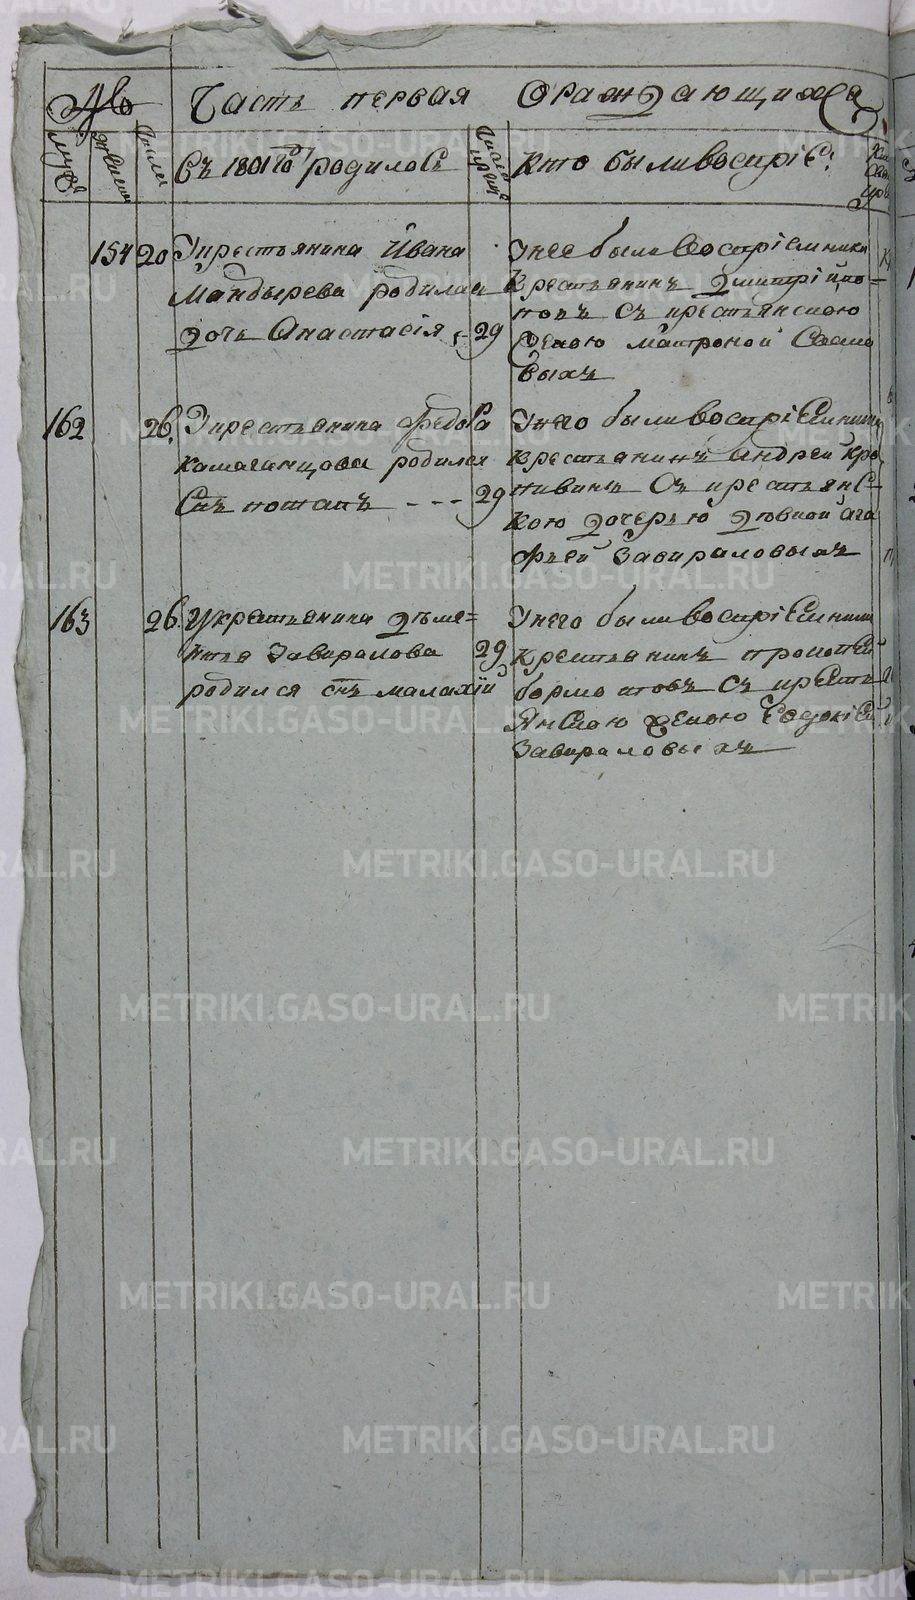 № Часть первая О раждающихся
Числы
Съ 1801го родилось
Кто были воспрiе:
154 20 У крестьянина Ивана
Мандырева родилась
дочь Анастасiя 29
У нее были воспрiемники
крестьянинъ Дмитрiй по
повъ съ крестьянскою
женою Матроной
выхъ
162 26. У крестьянина Федора
Камаганцова родился
Сынъ потапъ --- 29
У него были воспрiемники
крестьянинъ Андрей кро
пивинъ съ крестьянс-
кою дочерью дѣвкой ага
фьей Завираловыхъ
163 26. У крестьянина Дѣме=
нтья Завиралова 29
родился сынъ малахiй
У него были воспрiемники
крестьянинъ прокопей
бормотовъ съ кресть
янскою женою Евдокiей
Завираловыхъ
METRIKI.GASO-URAL.RU